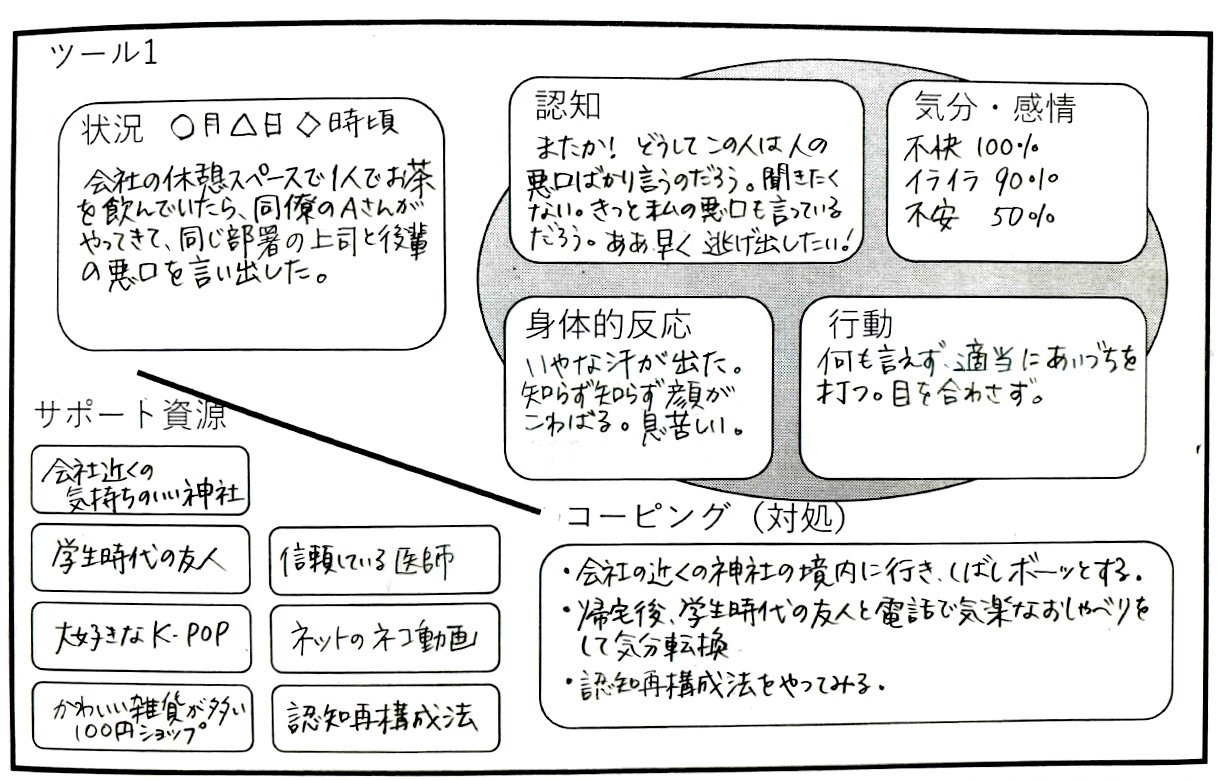 ツール1
状況 ○月△日◇時頃
会社の休憩スペースで1人でお茶
を飲んでいたら、同僚のAさんが
やってきて、同じ部署の上司と後輩
の悪口を言い出した。
認知
またか! どうしてこの人は人の
悪口ばかり言うのだろう。聞きたく
ない。きっと私の悪口も言っている
だろう。ああ早く逃げ出したい!
気分・感情
不快 100%
イライラ 90%
不安 50%
身体的反応
いやな汗が出た。
知らず知らず顔が
こわばる。息苦しい。
行動
何も言えず、適当にあいづちを
打つ。目を合わさず。
サポート資源
会社近くの
気持ちのいい神社
学生時代の友人
信頼している医師
大好きなK-POP
ネットのネコ動画
かわいい雑貨が多い
100円ショップ
認知再構成法
コーピング(対処)
・会社の近くの神社の境内に行き、しばしボーッとする。
・帰宅後、学生時代の友人と電話で気楽なおしゃべりを
して気分転換
・認知再構成法をやってみる。